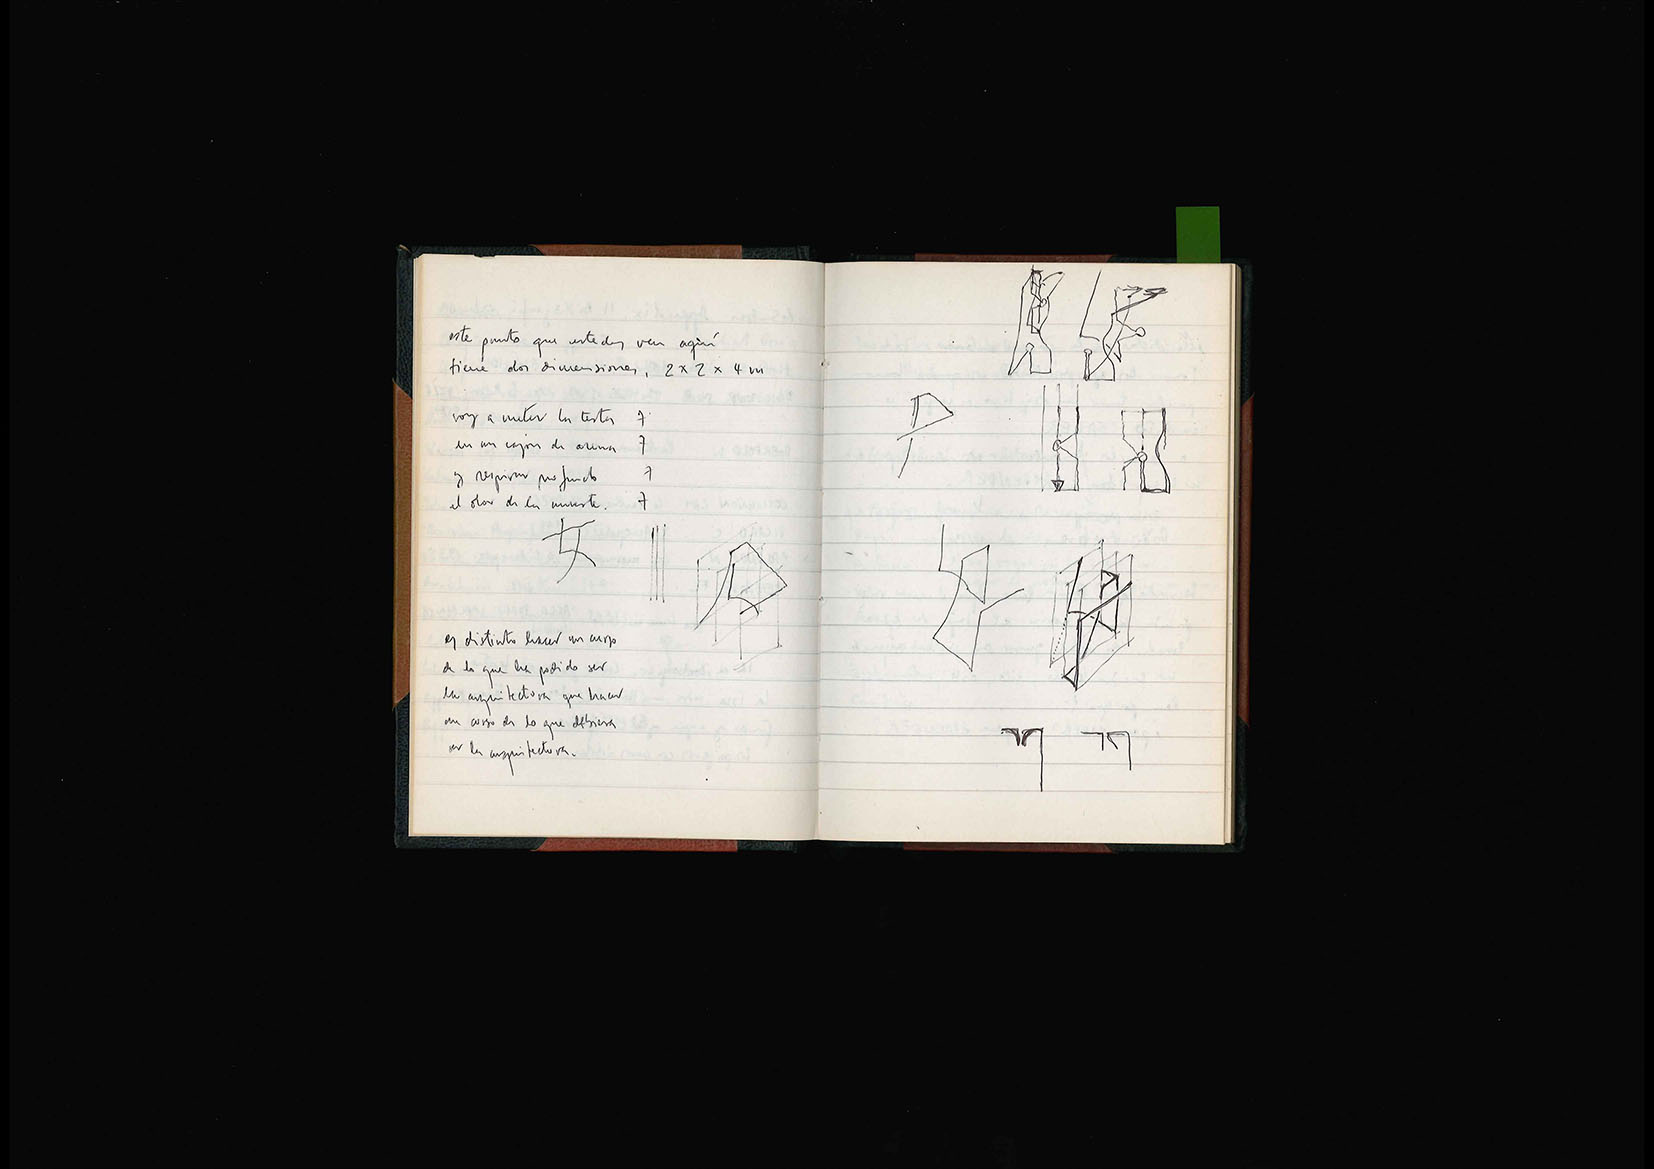 este punto que ustedes ven aquí
tiene dos dimensiones, 2 x 2 x 4 m
voy a meter la testa 7
en un cajón de arena 7
y respirar profundo 7
el olor de la muerte. 7
es distinto hacer un curso
de lo que ha podido ser
la arquitectura que hacer
un curso de lo que debiera
ser la arquitectura.